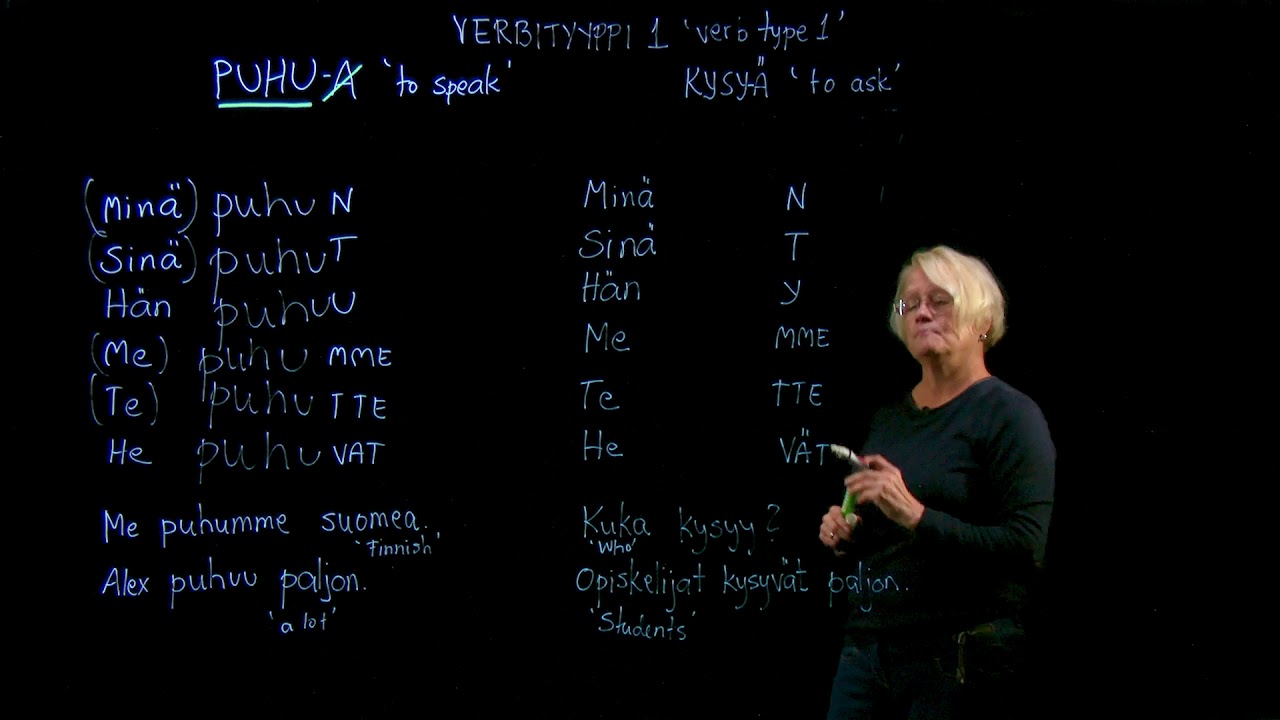 VERBITYYPPI 1 'verb type 1'
PUHU-A 'to speak'
KYSY-Ä 'to ask'
(Minä) puhu N
(Sinä) puhu T
Hän puhu U
(Me) puhu MME
(Te) puhu TTE
He puhu VAT
Me puhumme suomea.
'Finnish'
Alex puhuu paljon.
'a lot'
Minä N
Sinä T
Hän Y
Me MME
Te TTE
He VÄT
Kuka kysyy?
'Who'
Opiskelijat kysyvät paljon.
'Students'